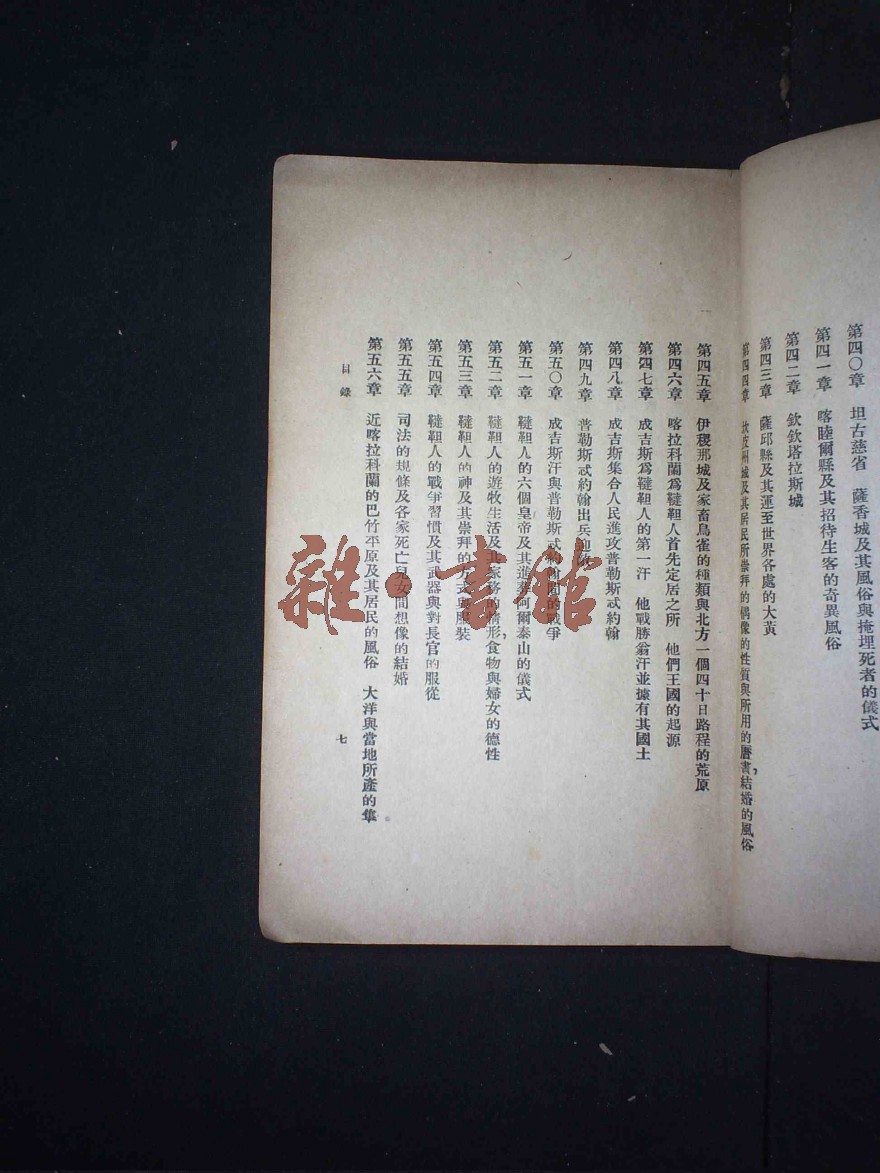 第四〇章　坦古慈省　薩香城及其風俗與掩埋死者的儀式
第四一章　喀睦爾縣及其招待生客的奇異風俗
第四二章　欽欽塔拉斯城
第四三章　薩邱縣及其運至世界各處的大黃
第四四章　坎皮州城及其居民所崇拜的偶像的性質與所用的曆書，結婚的風俗
第四五章　伊稷那城及家畜鳥雀的種類與北方一個四十日路程的荒原
第四六章　喀拉科蘭爲韃靼人首先定居之所　他們王國的起源
第四七章　成吉斯爲韃靼人的第一汗　他戰勝翁汗並據有其國土
第四八章　成吉斯集合人民進攻普勒斯忒約翰
第四九章　普勒斯忒約翰出兵迎敵
第五〇章　成吉斯汗與普勒斯忒約翰間的戰爭
第五一章　韃靼人的六個皇帝及其進葬阿爾泰山的儀式
第五二章　韃靼人的遊牧生活及其家務的情形，食物與婦女的德性
第五三章　韃靼人的神及其崇拜的方式與服裝
第五四章　韃靼人的戰爭習慣及其武器與對長官的服從
第五五章　司法的規條及各家死亡兒女間想像的結婚
第五六章　近喀拉科蘭的巴竹平原及其居民的風俗　大洋與當地所產的隼
目錄　七
雜·書館